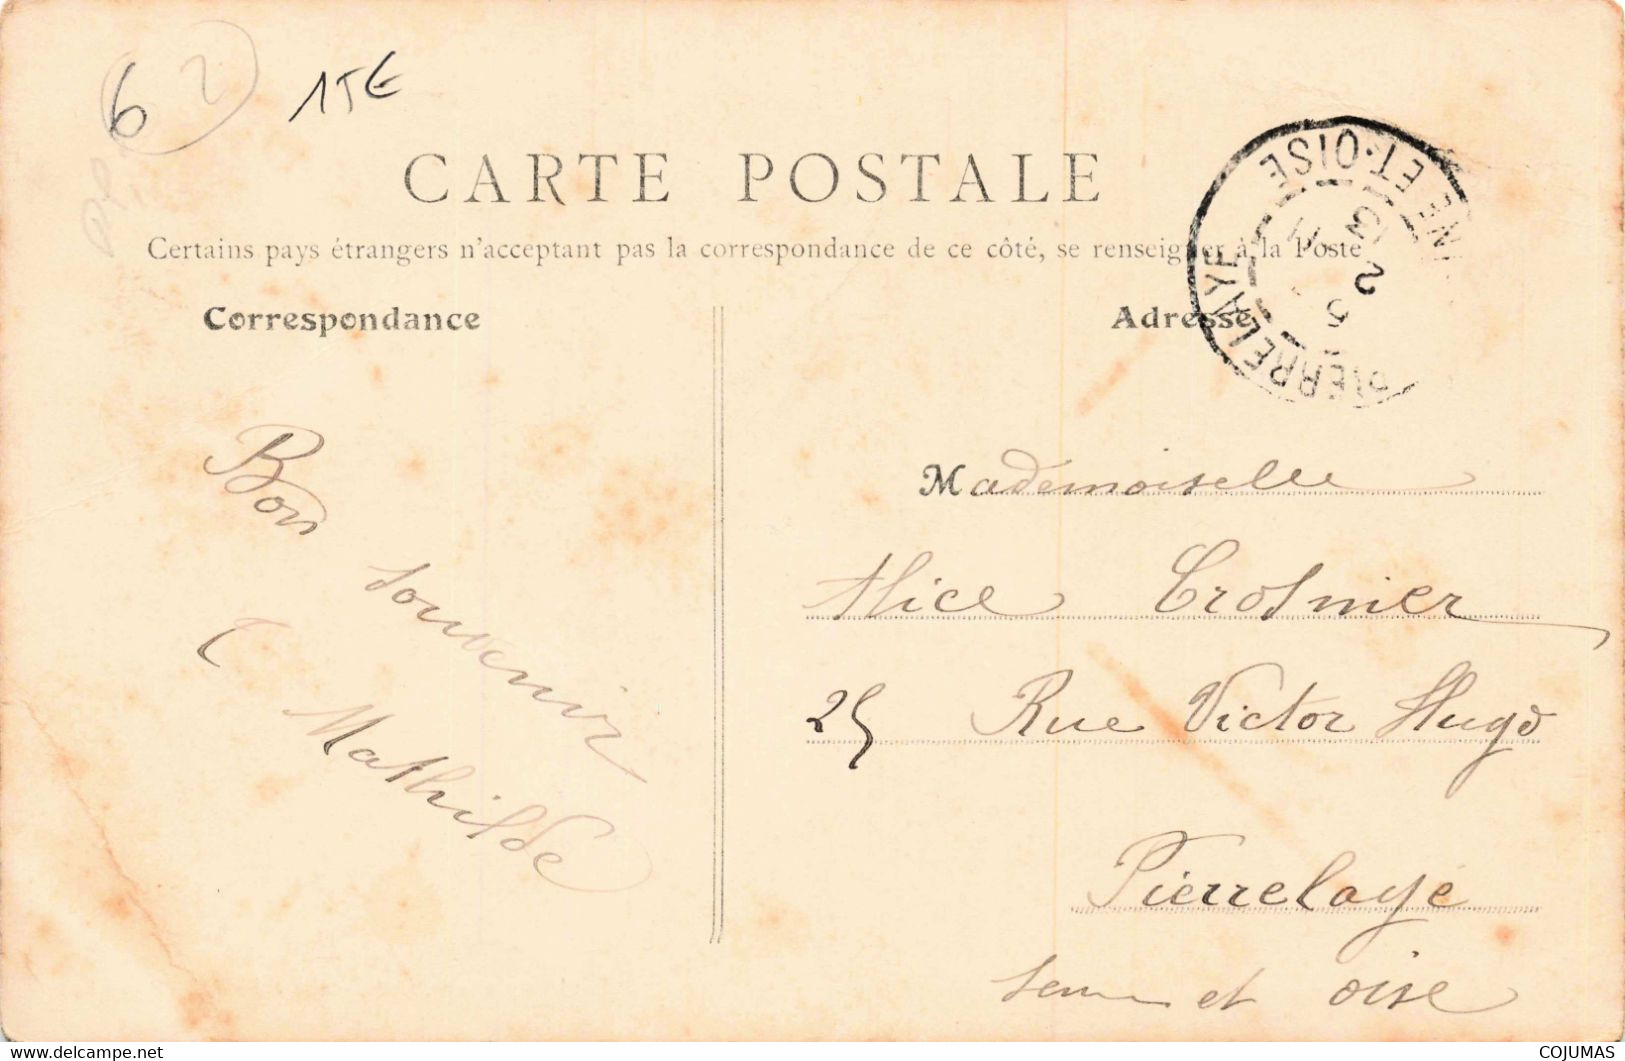 6 2
15€
CARTE POSTALE
Certains pays étrangers n'acceptant pas la correspondance de ce côté, se renseigner à la Poste
Correspondance
Adresse
PIERRELAYE
NE ET-OISE
Bon
souvenir
Mathilde
Mademoiselle
Alice Crosnier
25 Rue Victor Hugo
Pierrelaye
Seine et oise
delcampe.net
COJUMAS